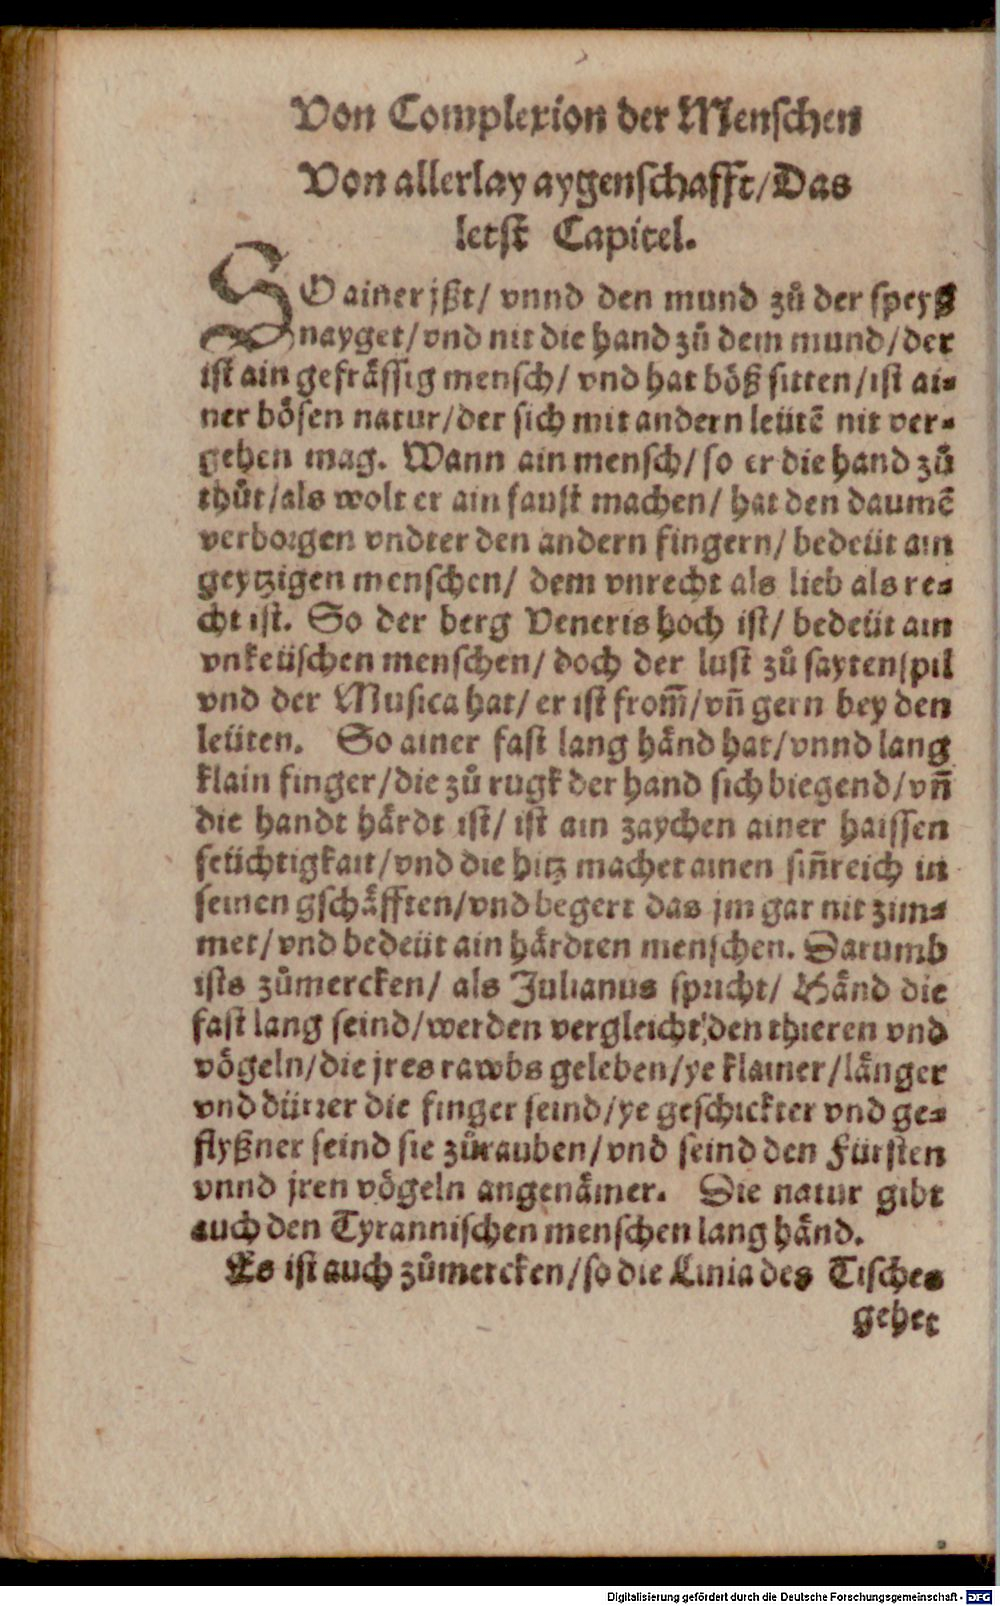 Von Complexion der Menschen
Von allerlay aygenschafft/Das
letst Capitel.
SO ainer jßt/ vnnd den mund zů der speyß
nayget/vnd nit die hand zů dem mund/der
ist ain gefrässig mensch/ vnd hat böß sitten/ist ai-
ner bösen natur/der sich mit andern leütẽ nit ver-
gehen mag. Wann ain mensch/so er die hand zů
thůt/als wolt er ain faust machen/ hat den daumẽ
verborgen vndter den andern fingern/ bedeüt ain
geytzigen menschen/ dem vnrecht als lieb als re-
cht ist. So der berg Veneris hoch ist/ bedeüt ain
vnkeüschen menschen/ doch der lust zů saytenspil
vnd der Musica hat/ er ist from̃/vñ gern bey den
leüten. So ainer fast lang händ hat/vnnd lang
klain finger/die zů rugk der hand sich biegend/vñ
die handt hårdt ist/ ist ain zaychen ainer haissen
feüchtigkait/vnd die hitz machet ainen siñreich in
seinen gschäfften/vnd begert das jm gar nit zim-
met/vnd bedeüt ain härdten menschen. Darumb
ists zůmercken/ als Julianus spricht/ Händ die
fast lang seind/werden vergleicht den thieren vnd
vögeln/die jres rawbs geleben/ye klainer/länger
vnd dürrer die finger seind/ye geschickter vnd ge-
flyßner seind sie zůrauben/vnd seind den Fürsten
vnnd jren vögeln angenämer. Die natur gibt
auch den Tyrannischen menschen lang händ.
Es ist auch zůmercken/so die Linia des Tisches
gehet
Digitalisierung gefördert durch die Deutsche Forschungsgemeinschaft - DFG